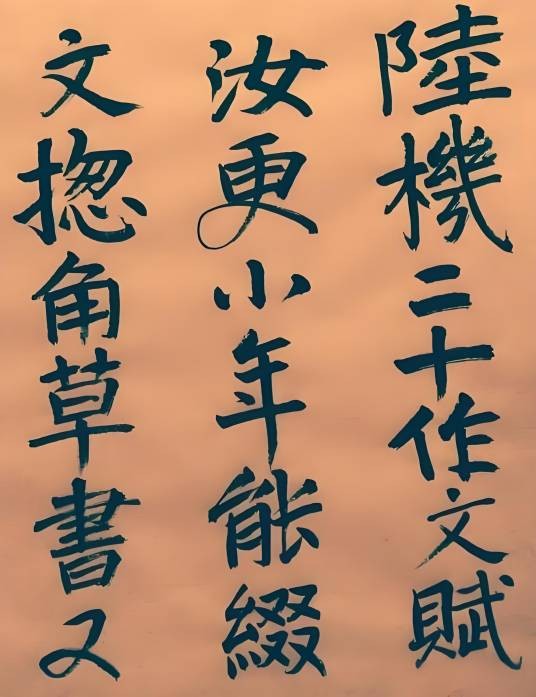 陸機二十作文賦
汝更小年能綴
文揔角草書又